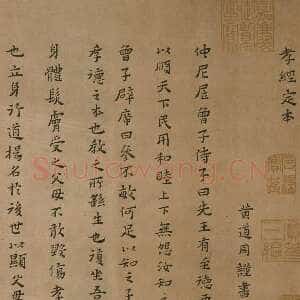 孝經定本
黃道周謹書
仲尼居曾子侍子曰先王有至德
以順天下民用和睦上下無怨汝知
曾子辟席曰參不敏何足以知之子
孝德之本也教之所繇生也復坐吾
身體髮膚受之父母不敢毀傷孝
也立身行道揚名於後世以顯父母
Shufawang.CN